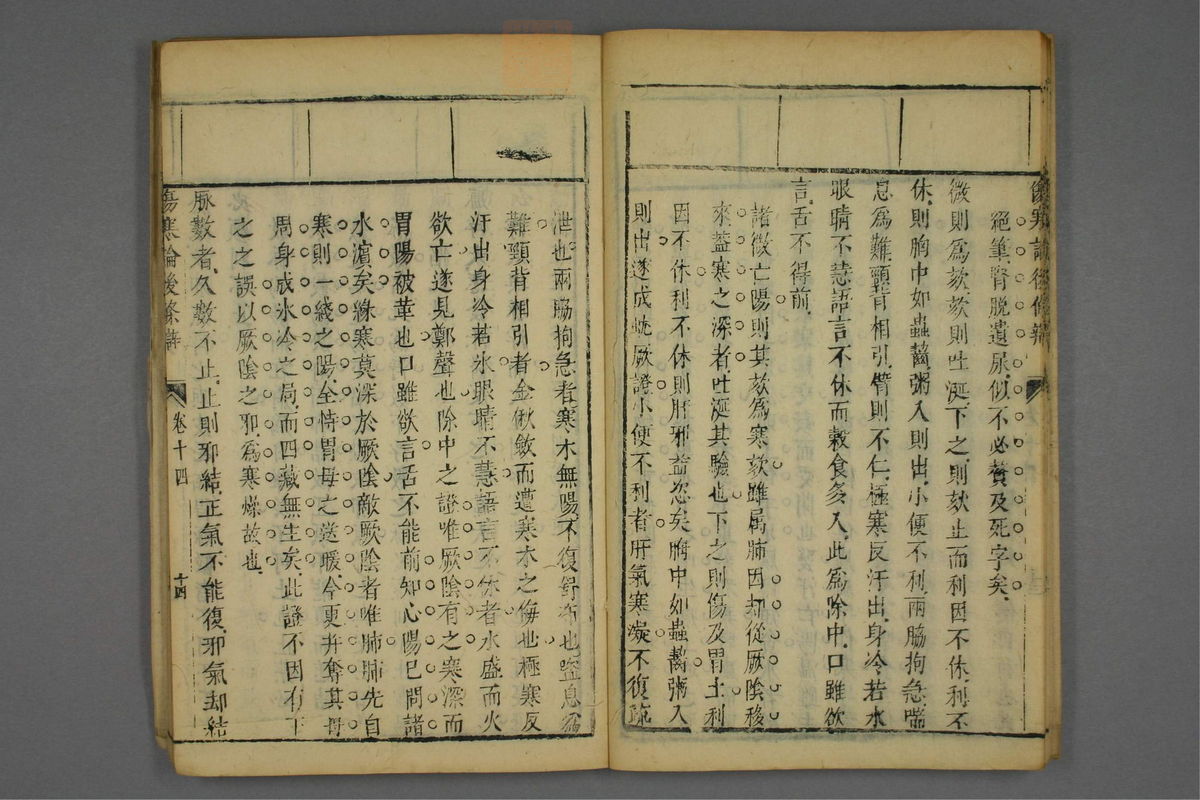 傷寒論後條辨
絕筆腎脫遺尿似不必贅及死字矣
微則為欬欬則吐涎下之則欬止而利因不休利不
休則胸中如蟲齧粥入則出小便不利兩脇拘急喘
息為難頸背相引臂則不仁極寒反汗出身冷若水
眼睛不慧語言不休而穀食多入此為除中口雖欲
言舌不得前
諸微亡陽則其欬為寒欬雖屬肺因却從厥陰移
來葢寒之深者吐涎其驗也下之則傷及胃土利
因不休利不休則肝邪益恣矣胸中如蟲齧粥入
則出遂成蚘厥證小便不利者肝氣寒凝不復疏
泄也兩脇拘急者寒木無陽不復舒布也喘息為
難頸背相引者金僦斂而遭寒木之侮也極寒反
汗出身冷若氷眼睛不慧語言不休者水盛而火
欲亡遂見鄭聲也除中之證唯厥陰有之寒深而
胃陽被革也口雖欲言舌不能前知心陽已問諸
水濵矣緣寒莫深於厥陰敵厥陰者唯肺肺先自
寒則一綫之陽全恃胃母之送暖今更并奪其母
周身成氷冷之局而四藏無生矣此證不因有下
之之誤以厥陰之邪為寒燥故也
脉數者久數不止止則邪結正氣不能復邪氣却結
傷寒論後條辨
卷十四
十四